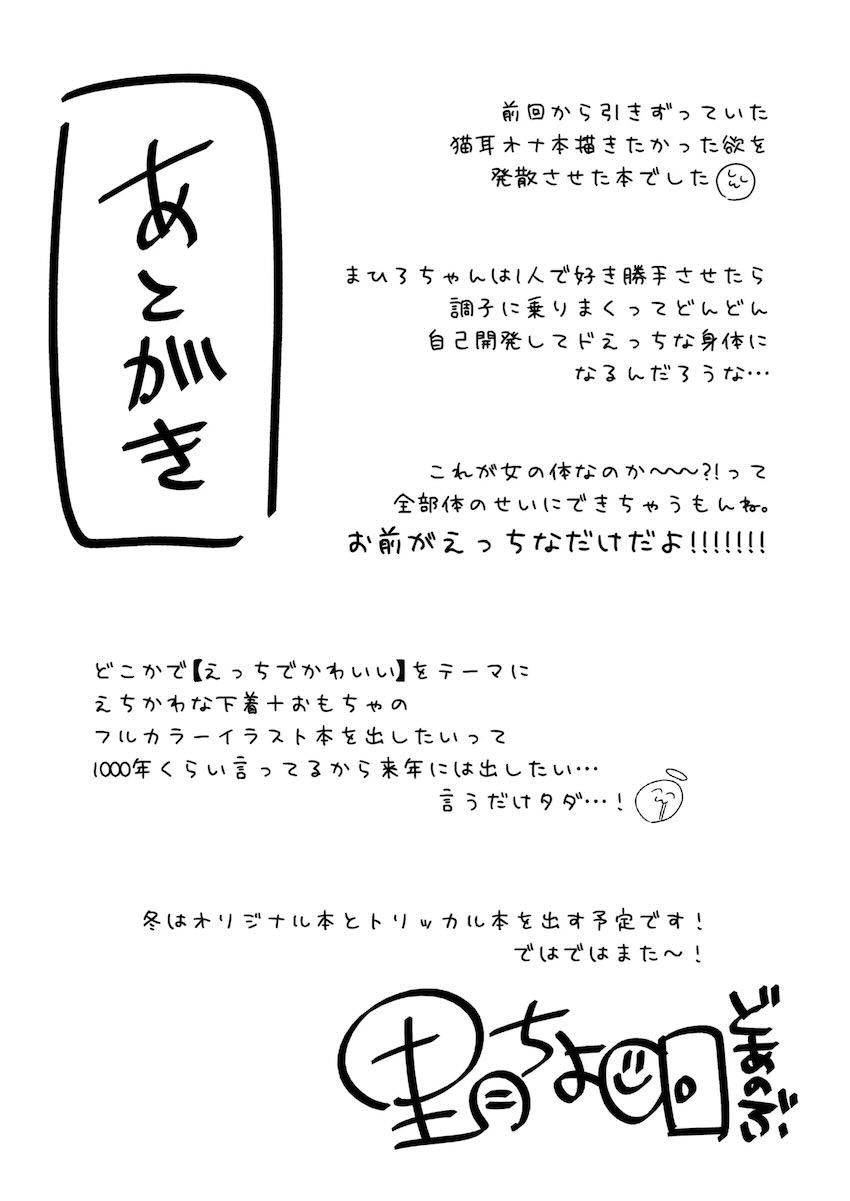 あとがき
前回から引きずっていた
猫耳オナ本描きたかった欲を
発散させた本でした
まひろちゃんは1人で好き勝手させたら
調子に乗りまくってどんどん
自己開発してドえっちな身体に
なるんだろうな…
これが女の体なのか〜〜〜?!って
全部体のせいにできちゃうもんね。
お前がえっちなだけだよ!!!!!!!
どこかで【えっちでかわいい】をテーマに
えちかわな下着+おもちゃの
フルカラーイラスト本を出したいって
1000年くらい言ってるから来年には出したい…
言うだけタダ…！
冬はオリジナル本とトリッカル本を出す予定です！
ではではまた〜！
どあのぶ